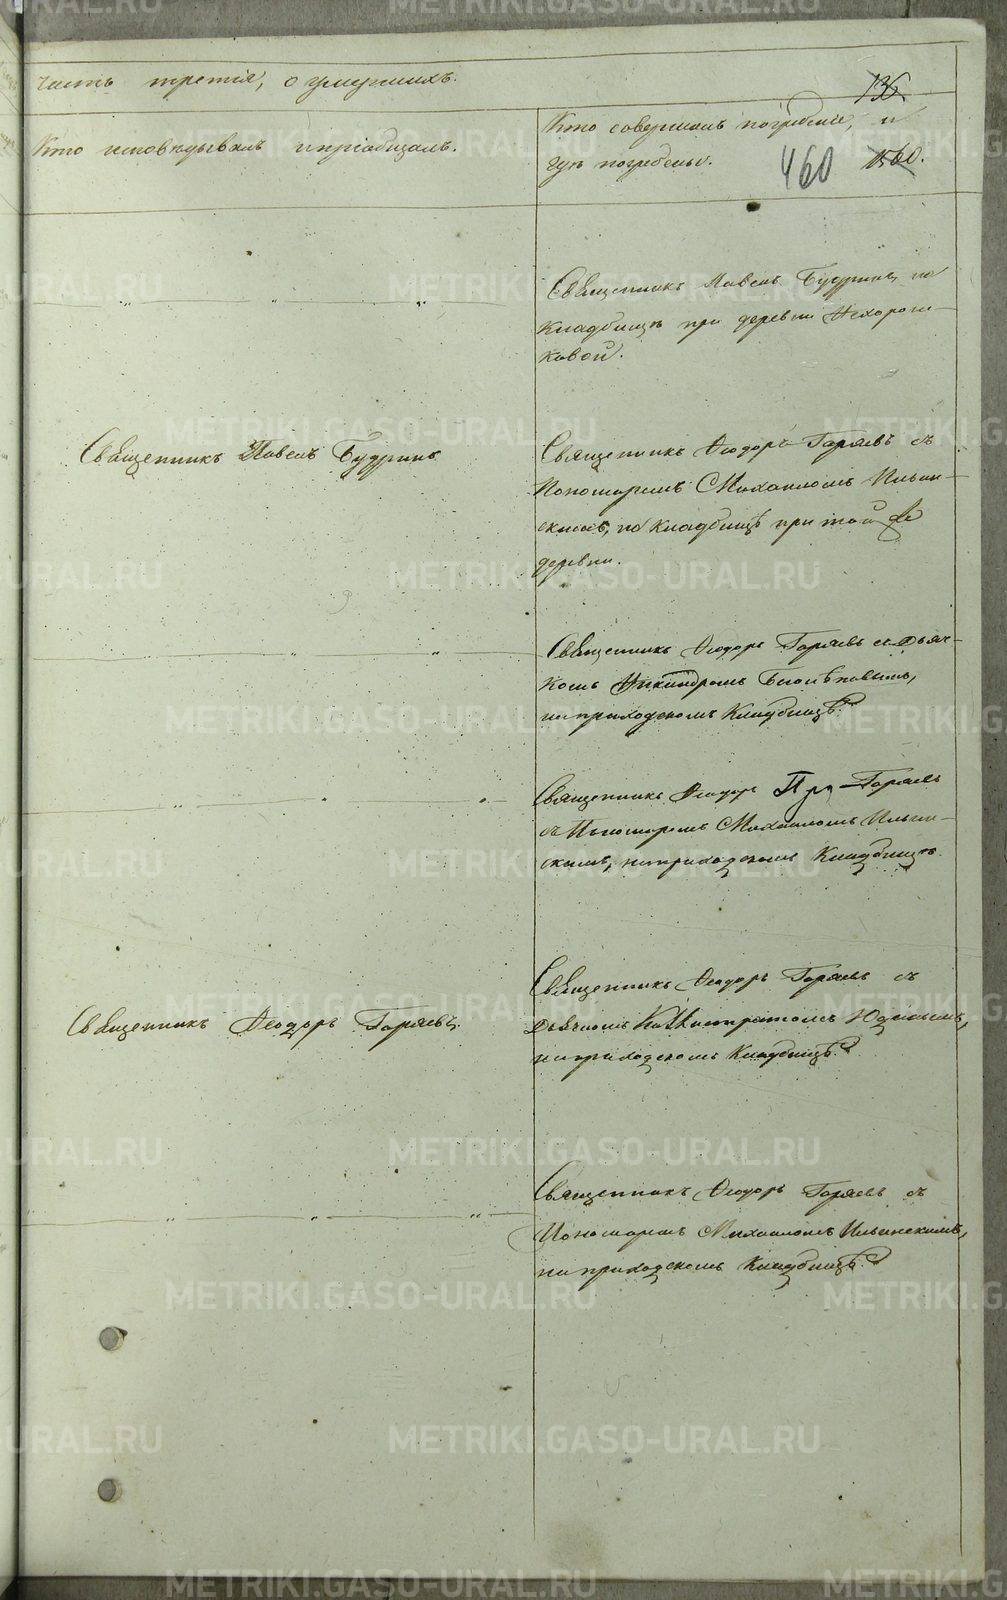 часть третія, о умершихъ.
136
Кто исповѣдывалъ и пріобщалъ.
Кто совершалъ погребеніе, и
гдѣ погребены.
460 1560.
Священникъ Павелъ Будринъ, на
Кладбищѣ при деревни
ковой.
Священникъ Павелъ Будринъ
Священникъ Ѳеодоръ Горяевъ съ
Пономаремъ Михаиломъ Ильин-
скимъ, на кладбищѣ при той же
деревни.
Священникъ Ѳеодоръ Горяевъ съ Дьяч-
комъ
на приходскомъ Кладбищѣ.
Священникъ Ѳеодоръ Горяевъ
съ Пономаремъ Михаиломъ Ильин-
скимъ, на приходскомъ Кладбищѣ.
Священникъ Ѳеодоръ Горяевъ.
Священникъ Ѳеодоръ Горяевъ съ
Дьячкомъ
на приходскомъ Кладбищѣ.
Священникъ Ѳеодоръ Горяевъ съ
Пономаремъ Михаиломъ Ильинскимъ,
на приходскомъ Кладбищѣ.
METRIKI.GASO-URAL.RU